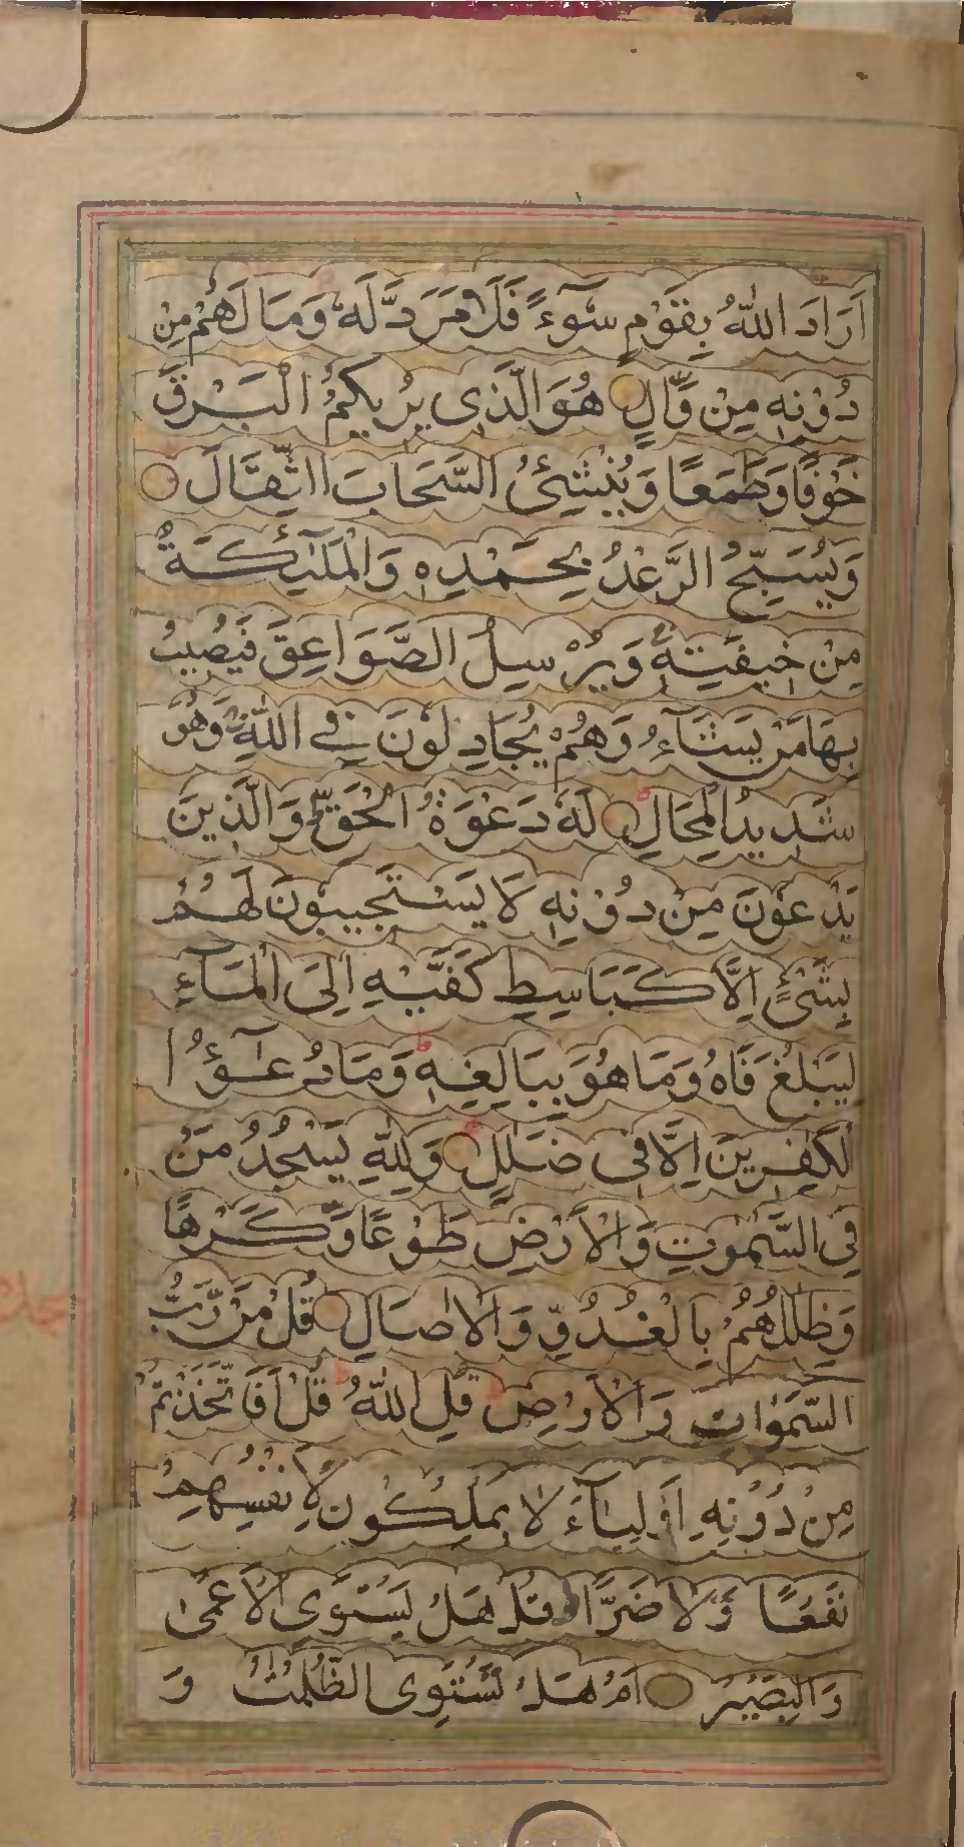 اَرَادَ اللّٰهُ بِقَوْمٍ سُوْٓءًا فَلَا مَرَدَّ لَهٗ وَمَا لَهُمْ مِنْ
دُوْنِهٖ مِنْ وَّالٍ هُوَ الَّذِى يُرِيكُمُ الْبَرْقَ
خَوْفًا وَطَمَعًا وَيُنْشِئُ السَّحَابَ الثِّقَالَ
وَيُسَبِّحُ الرَّعْدُ بِحَمْدِهٖ وَالْمَلٰٓئِكَةُ
مِنْ خِيفَتِهٖ وَيُرْسِلُ الصَّوَاعِقَ فَيُصِيبُ
بِهَا مَنْ يَشَآءُ وَهُمْ يُجَادِلُوْنَ فِى اللّٰهِ وَهُوَ
شَدِيدُ الْمِحَالِ لَهٗ دَعْوَةُ الْحَقِّ وَالَّذِينَ
يَدْعُوْنَ مِنْ دُوْنِهٖ لَا يَسْتَجِيبُوْنَ لَهُمْ
بِشَئٍ اِلَّا كَبَاسِطِ كَفَّيْهِ اِلَى الْمَآءِ
لِيَبْلُغَ فَاهُ وَمَا هُوَ بِبَالِغِهٖ وَمَا دُعَآؤُا
لْكٰفِرِينَ اِلَّا فِى ضَلٰلٍ وَلِلّٰهِ يَسْجُدُ مَنْ
فِى السَّمٰوٰتِ وَالْاَرْضِ طَوْعًا وَّكَرْهًا
وَظِلٰلُهُمْ بِالْغُدُوِّ وَالْاٰصَالِ قُلْ مَنْ رَّبُّ
السَّمٰوَاتِ وَالْاَرْضِ قُلِ اللّٰهُ قُلْ اَفَاتَّخَذْتُمْ
مِنْ دُوْنِهِ اَوْلِيَآءَ لَا يَمْلِكُوْنَ لِاَنْفُسِهِمْ
نَفْعًا وَّلَا ضَرًّا قُلْ هَلْ يَسْتَوِى الْاَعْمٰى
وَالْبَصِيْرُ اَمْ هَلْ تَسْتَوِى الظُّلُمٰتُ وَ